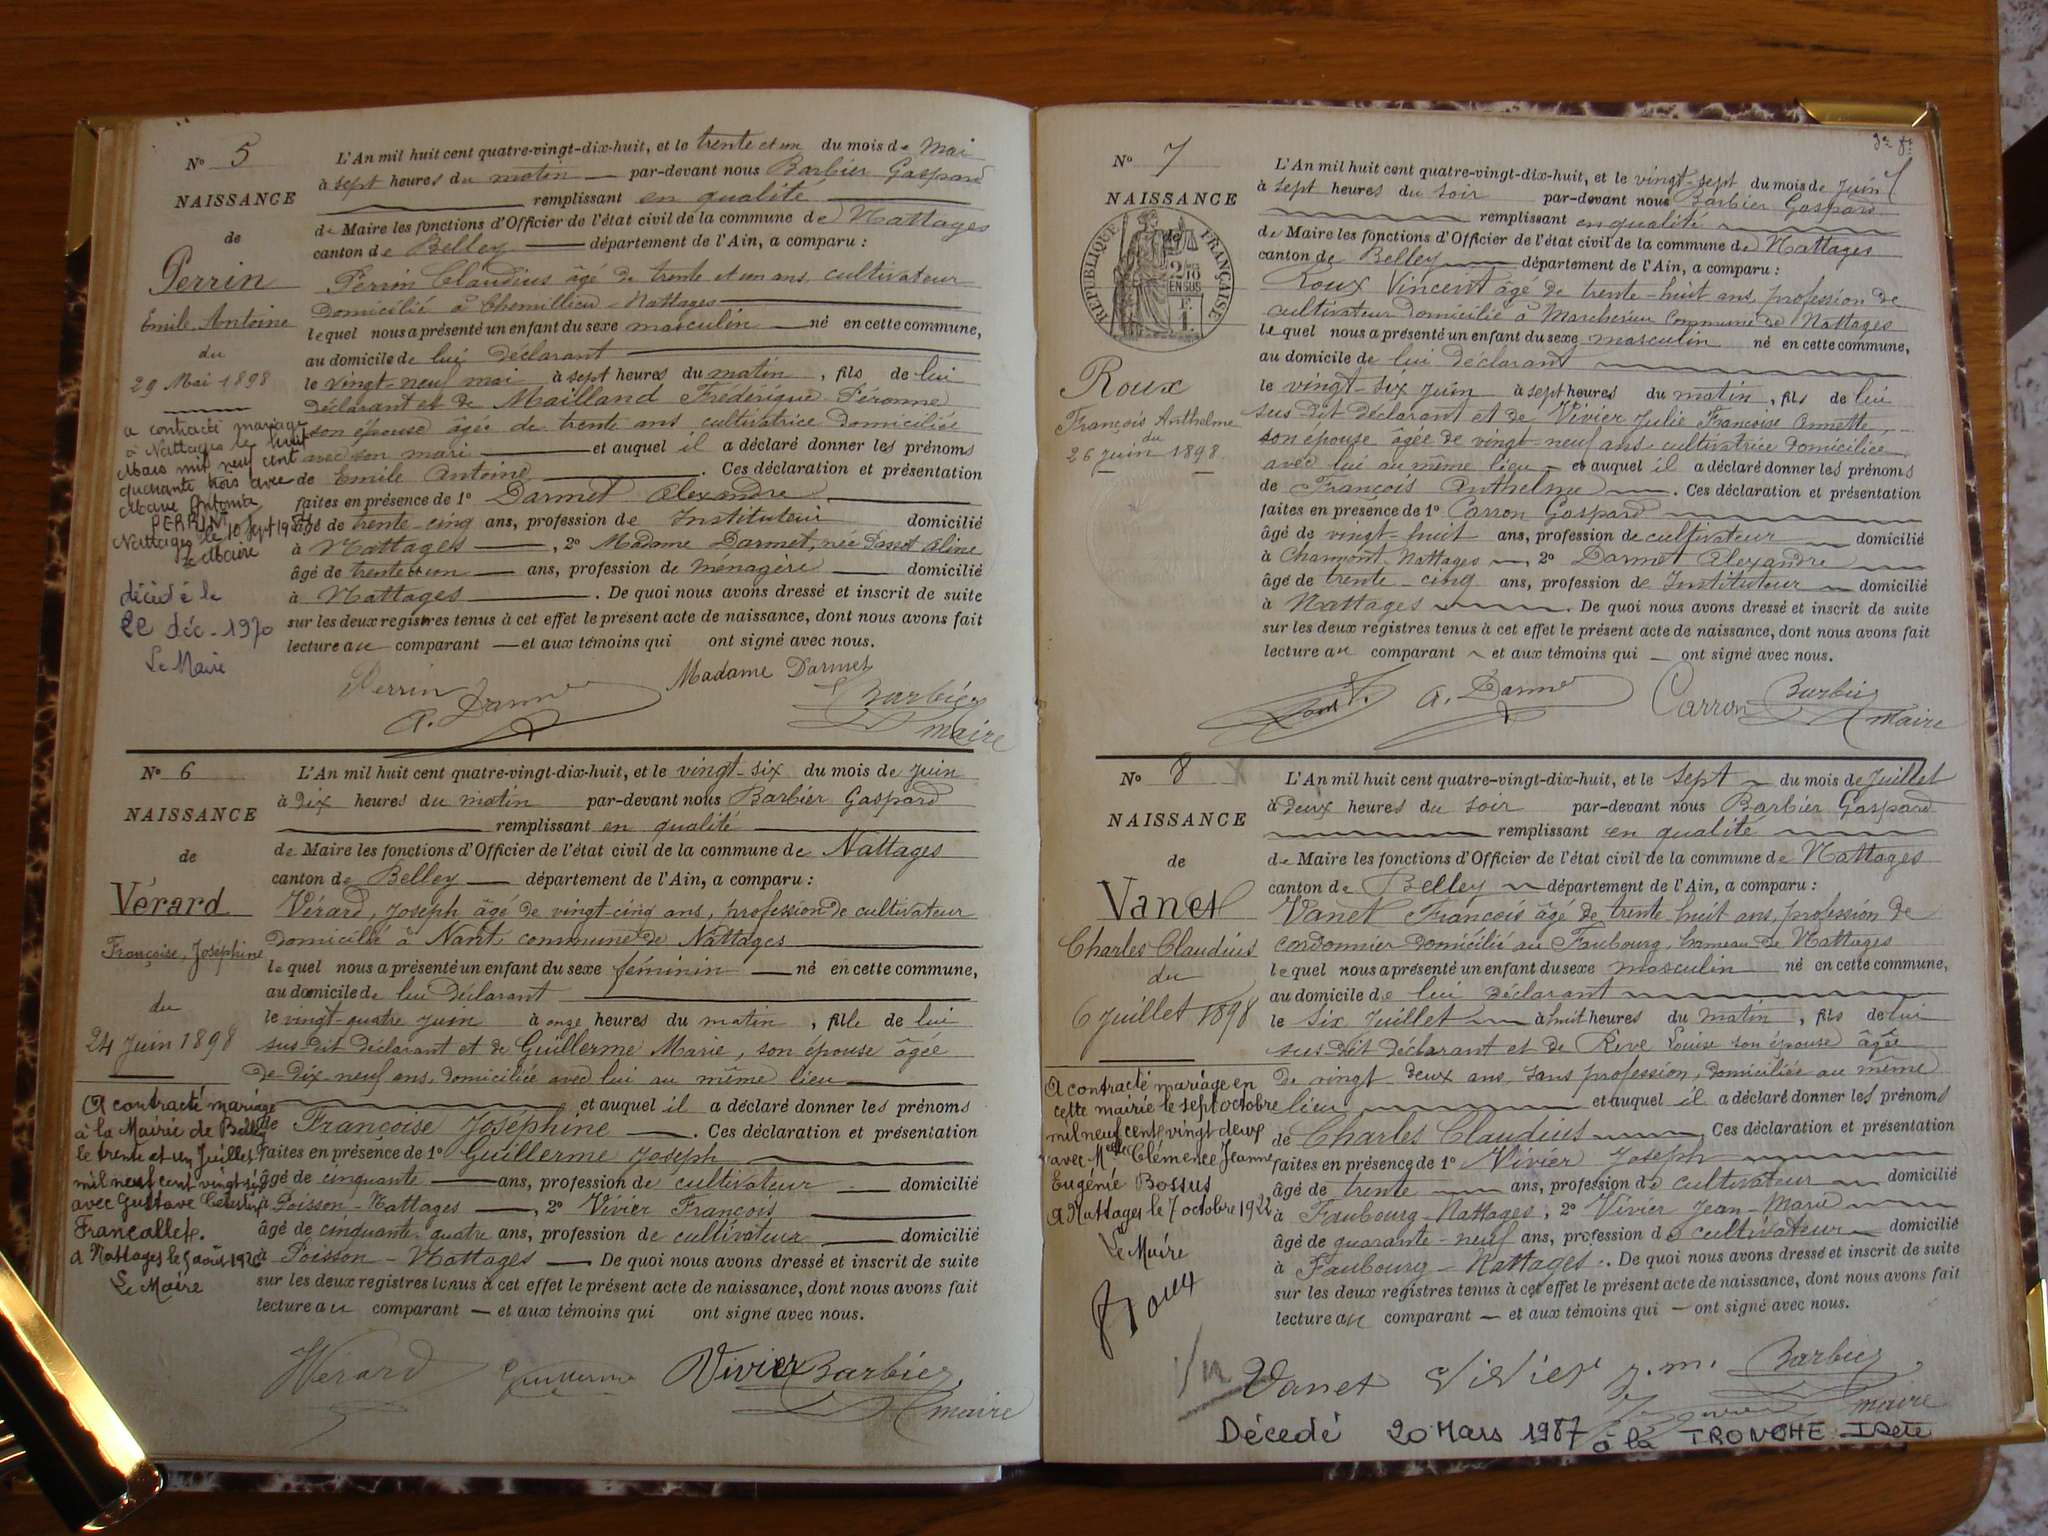 Nº 5
NAISSANCE
de
Perrin
Emile Antoine
du
29 Mai 1898
a contracté mariage
à Nattages le huit
Mars mil neuf cent
quarante trois avec
Marie Antonia
PERRIN
Nattages le 10 Sept
Le Maire
décédé le
22 déc. 1970
Le Maire
L'An mil huit cent quatre-vingt-dix-huit, et le trente et un du mois de Mai
à sept heures du matin par-devant nous Barbier Gaspard
remplissant en qualité
de Maire les fonctions d'Officier de l'état civil de la commune de Nattages
canton de Belley département de l'Ain, a comparu :
Perrin Claudius âgé de trente et un ans, cultivateur
domicilié à Chemillieu-Nattages
lequel nous a présenté un enfant du sexe masculin né en cette commune,
au domicile de lui déclarant
le vingt-neuf mai à sept heures du matin, fils de lui
déclarant et de Mailland Frédérique Péronne
son épouse âgée de trente ans cultivatrice domiciliée
avec son mari et auquel il a déclaré donner les prénoms
de Emile Antoine. Ces déclaration et présentation
faites en présence de 1º Darmet Alexandre
âgé de trente-cinq ans, profession de Instituteur domicilié
à Nattages, 2º Madame Darmet, née Aline
âgé de trente et un ans, profession de ménagère domicilié
à Nattages. De quoi nous avons dressé et inscrit de suite
sur les deux registres tenus à cet effet le présent acte de naissance, dont nous avons fait
lecture au comparant et aux témoins qui ont signé avec nous.
Perrin Madame Darmet
A. Darmet Barbier
maire
Nº 6
NAISSANCE
de
Vérard
Françoise Joséphine
du
24 Juin 1898
A contracté mariage
à la Mairie de Belley
le trente et un Juillet
mil neuf cent vingt six
avec Gustave Célestin
Francallet.
A Nattages le 5 août 1926
Le Maire
L'An mil huit cent quatre-vingt-dix-huit, et le vingt-six du mois de Juin
à dix heures du matin par-devant nous Barbier Gaspard
remplissant en qualité
de Maire les fonctions d'Officier de l'état civil de la commune de Nattages
canton de Belley département de l'Ain, a comparu :
Vérard, Joseph âgé de vingt-cinq ans, profession de cultivateur
domicilié à Nant commune de Nattages
lequel nous a présenté un enfant du sexe féminin né en cette commune,
au domicile de lui déclarant
le vingt-quatre Juin à onze heures du matin, fille de lui
sus dit déclarant et de Guillerme Marie, son épouse âgée
de dix-neuf ans, domiciliée avec lui au même lieu
et auquel il a déclaré donner les prénoms
de Françoise Joséphine. Ces déclaration et présentation
faites en présence de 1º Guillerme Joseph
âgé de cinquante ans, profession de cultivateur domicilié
à Poisson-Nattages, 2º Vivier François
âgé de cinquante-quatre ans, profession de cultivateur domicilié
à Poisson-Nattages De quoi nous avons dressé et inscrit de suite
sur les deux registres tenus à cet effet le présent acte de naissance, dont nous avons fait
lecture au comparant et aux témoins qui ont signé avec nous.
Vérard Guillerme Vivier Barbier
maire
Nº 7
NAISSANCE
de
RÉPUBLIQUE FRANÇAISE
2/10
EN SUS
Roux
François Anthelme
du
26 Juin 1898.
L'An mil huit cent quatre-vingt-dix-huit, et le vingt-sept du mois de Juin
à sept heures du soir par-devant nous Barbier Gaspard
remplissant en qualité
de Maire les fonctions d'Officier de l'état civil de la commune de Nattages
canton de Belley département de l'Ain, a comparu :
Roux Vincent âgé de trente-huit ans, profession de
cultivateur domicilié à commune de Nattages
lequel nous a présenté un enfant du sexe masculin né en cette commune,
au domicile de lui déclarant
le vingt-six Juin à sept heures du matin, fils de lui
sus dit déclarant et de Vivier Julie Françoise Annette,
son épouse âgée de vingt-neuf ans cultivatrice domiciliée
avec lui au même lieu et auquel il a déclaré donner les prénoms
de François Anthelme. Ces déclaration et présentation
faites en présence de 1º Carron Gaspard
âgé de vingt-huit ans, profession de cultivateur domicilié
à Chanmont Nattages, 2º Darmet Alexandre
âgé de trente-cinq ans, profession de Instituteur domicilié
à Nattages. De quoi nous avons dressé et inscrit de suite
sur les deux registres tenus à cet effet le présent acte de naissance, dont nous avons fait
lecture au comparant et aux témoins qui ont signé avec nous.
A. Darmet Carron Barbier
maire
Nº 8
NAISSANCE
de
Vanet
Charles Claudius
du
6 Juillet 1898
A contracté mariage en
cette mairie le sept octobre
mil neuf cent vingt deux
avec Melle Clémence Jeanne
Eugénie Bossus
A Nattages le 7 octobre 1922
Le Maire
Roux
L'An mil huit cent quatre-vingt-dix-huit, et le sept du mois de Juillet
à deux heures du soir par-devant nous Barbier Gaspard
remplissant en qualité
de Maire les fonctions d'Officier de l'état civil de la commune de Nattages
canton de Belley département de l'Ain, a comparu :
Vanet François âgé de trente huit ans, profession de
cordonnier domicilié au Faubourg, hameau de Nattages
lequel nous a présenté un enfant du sexe masculin né en cette commune,
au domicile de lui déclarant
le six Juillet à huit heures du matin, fils de lui
sus dit déclarant et de Rive Louise son épouse âgée
de vingt deux ans, sans profession, domiciliée au même
lieu et auquel il a déclaré donner les prénoms
de Charles Claudius Ces déclaration et présentation
faites en présence de 1º Vivier Joseph
âgé de trente ans, profession de cultivateur domicilié
à Faubourg-Nattages, 2º Vivier Jean-Marie
âgé de quarante-neuf ans, profession de cultivateur domicilié
à Faubourg-Nattages. De quoi nous avons dressé et inscrit de suite
sur les deux registres tenus à cet effet le présent acte de naissance, dont nous avons fait
lecture au comparant et aux témoins qui ont signé avec nous.
Vanet Vivier J. M. Barbier
maire
Décedé 20 Mars 1987 à la TRONCHE Isère